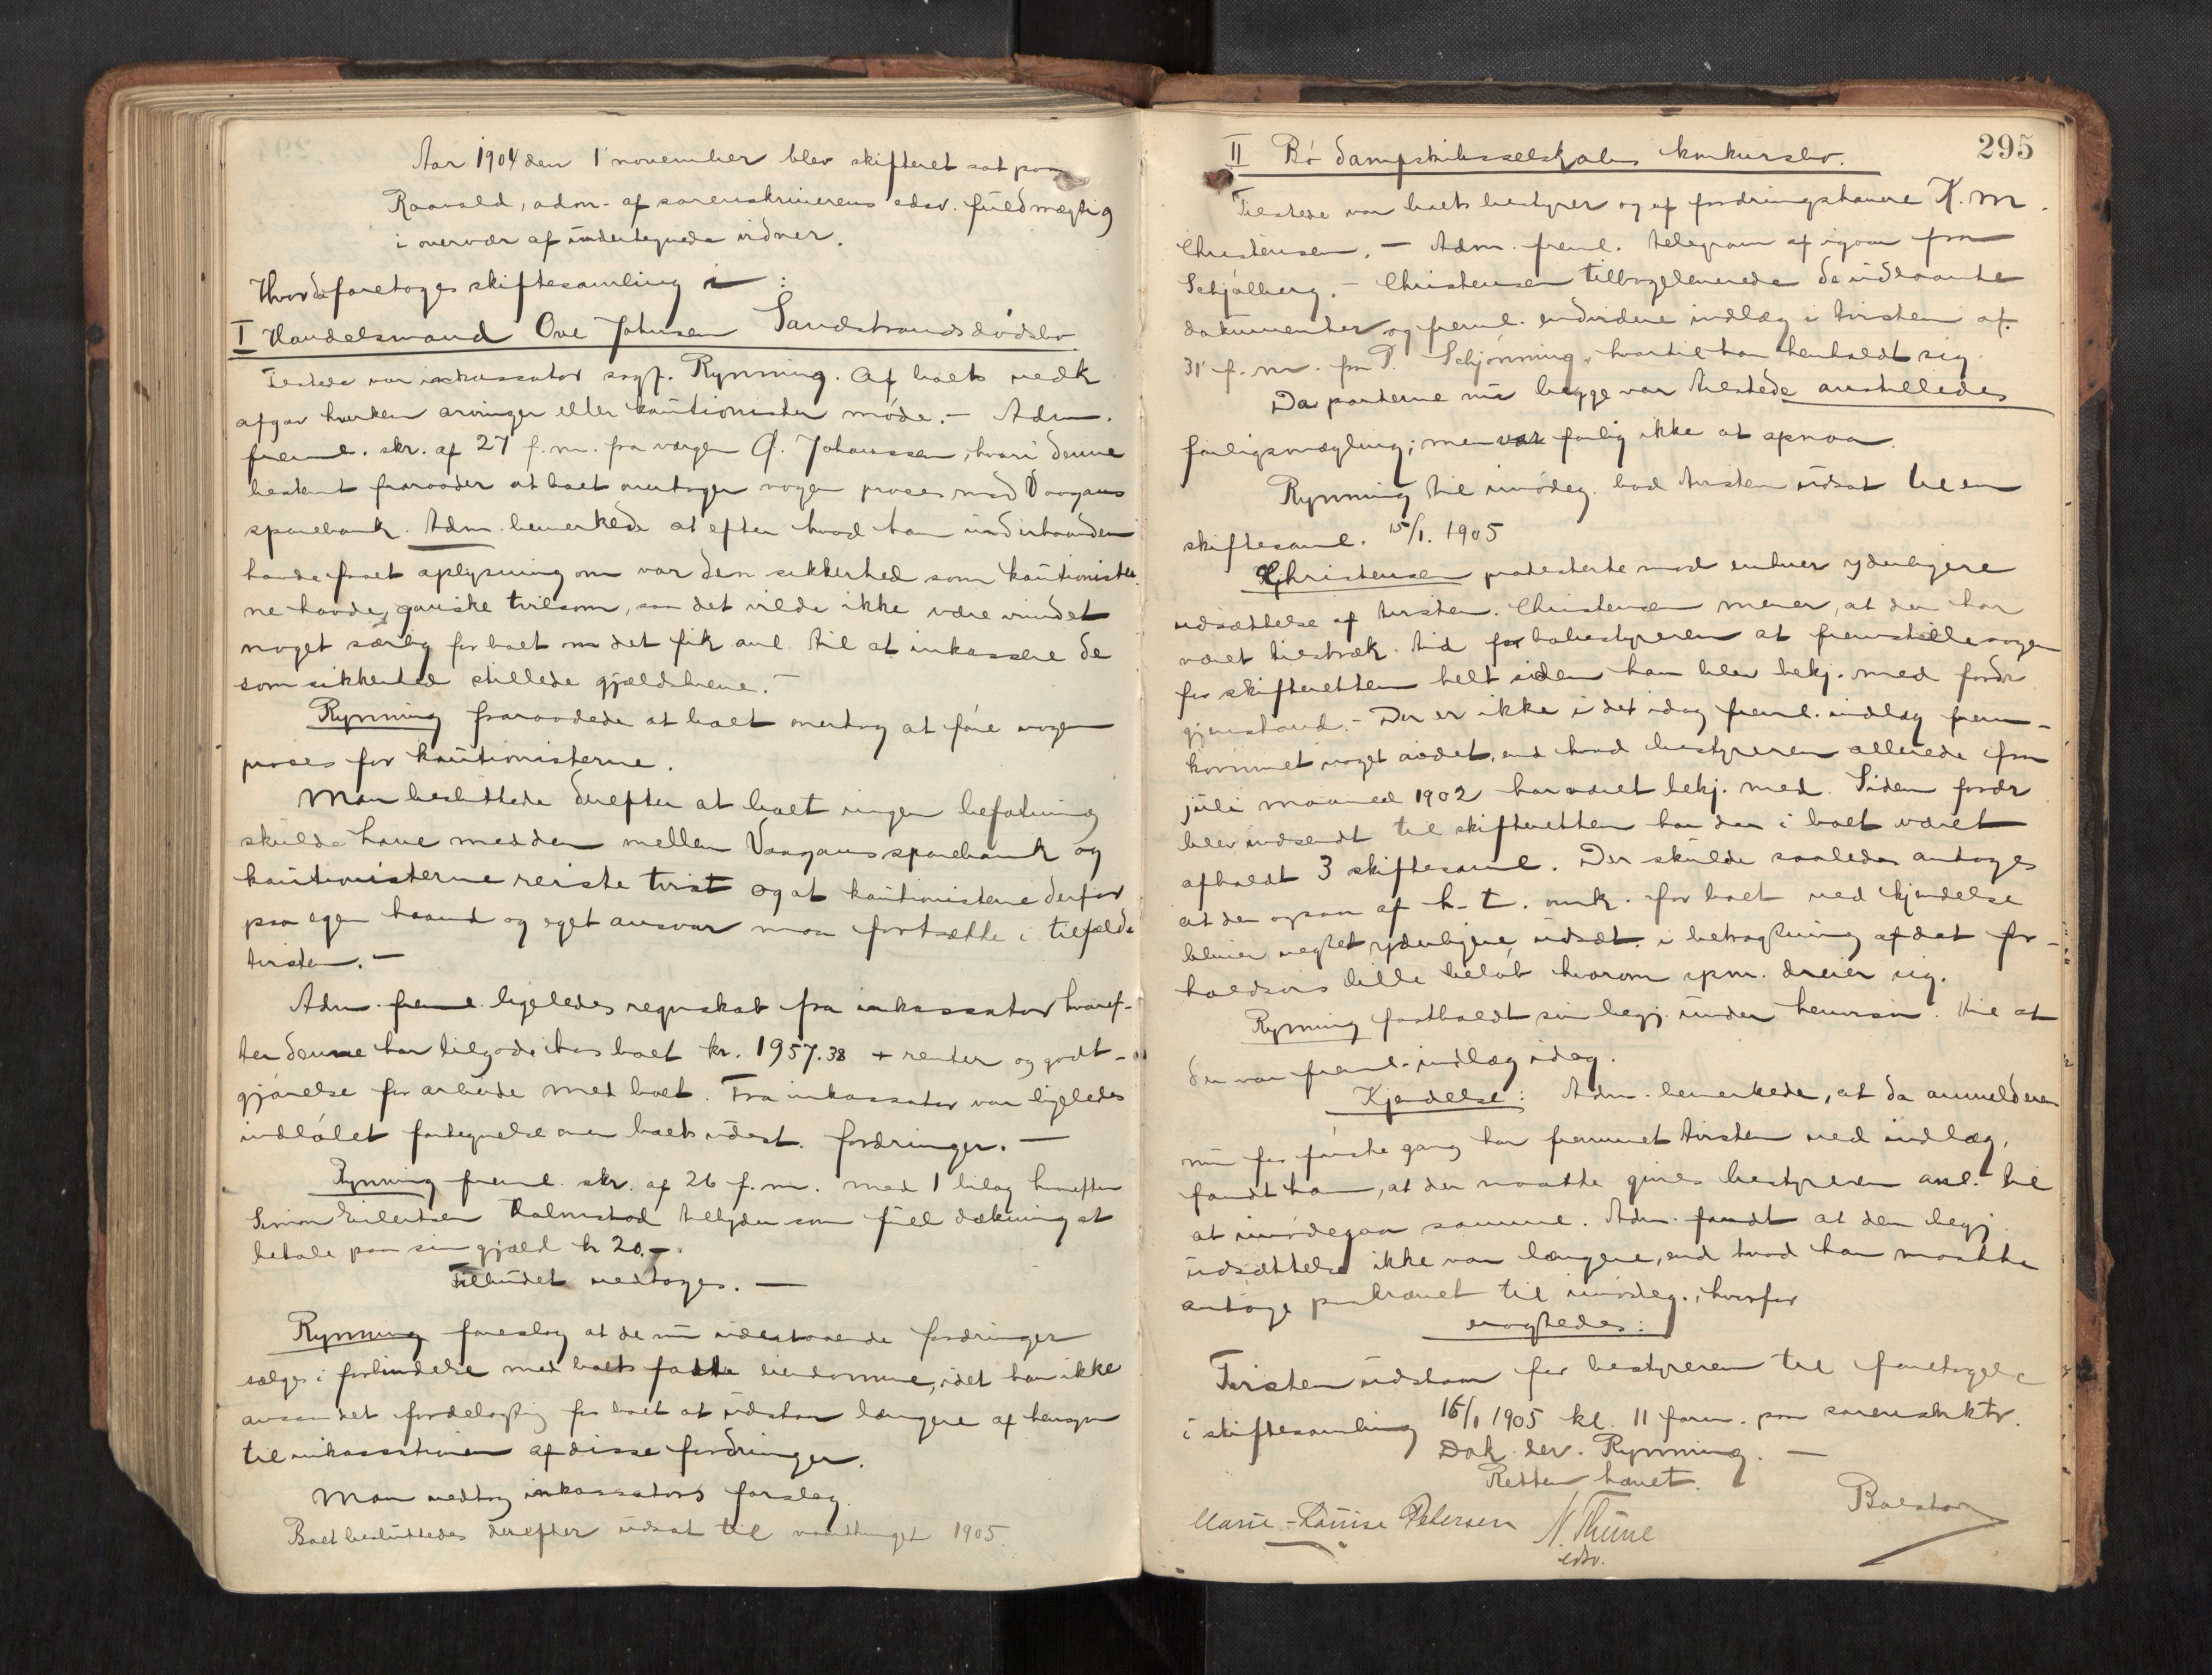 Aar 1904 den 1 november blev skifteret sat paa
Raavald, adm. af sorenskriverens edsv. fuldmægtig
i overvær af undertegnede vidner.
Hvorda foretoges skiftesamling i :
I Handelsmand Ove Johnsen Sandstrands dødsbo
Tilstede var inkassator sagf. Rynning. Af boets vedk
afgav hverken arvinger eller kautionister møde. – Adm.
freml. skr. af 27 f.m. fra vergen O. Johanssen, hvori denne
bestemt fraraader at boet overtager nogen proces mod Vaagans
sparebank. Adm. bemerkede at efter hvad han underhaanden
havde faaet oplysning om var den sikkerhed som kautionister
ne havde, ganske tvilsom, saa det vilde ikke være vundet
noget særlig for boet om det fik anl. til at inkassere de
som sikkerhed stillede gjældsbreve. –
Rynning fraraadede at boet overtog at føre nogen
proces for kautionisterne.
Man besluttede derefter at boet ingen befatning
skulde have med den mellem Vaagans sparebank og
kautionisterne reiste tvist og at kautionisterne derfor
paa egen haand og eget ansvar maa fortsætte i tilfælde
tvisten. –
Adm. freml. ligeledes regnskab fra inkassator hvoref-
ter denne har tilgode hos boet kr. 1957.38 + renter og godt-
gjørelse for arbeide med boet. Fra inkassator var ligeledes
indløbet fortegnelse over boets udest. fordringer. –
Rynning freml. skr. af 26 f.m. med 1 bilag hvorefter
Simon Eilertsen tilbyder som fuld dækning at
betale paa sin gjæld kr 20.–.
Tilbudet vedtoges. –
Rynning foreslog at de nu udestaaende fordringer
sælges i forbindelse med boets faste eiendomme, idet han ikke
ansaa det fordelagtig for boet at udstaa længere af hensyn
til inkassationen af disse fordringer.
Man vedtog inkassators forslag.
Boet besluttedes derefter udsat til vaarthinget 1905.
295
II Bø dampskibsselskabs konkursbo.
Tilstede var boets bestyrer og af fordringshavere K. M.
Christensen. – Adm. freml. telegram af igaar fra
Schjølberg. – Christensen tilbageleverede de udlaante
dokumenter og freml. endvidere indlæg i tvisten af
31 f.m. fra P. Schjønning, hvortil han henholdt sig.
Da parterne nu begge var tilstede anstilledes
forligsmægling; men var forlig ikke at opnaa.
Rynning til imødeg. bad tvisten udsat til en
skiftesaml. 15/1. 1905
Christensen protesterte mod enhver yderligere
udsættelse af tvisten. Christensen mener, at der har
været tilstræk. tid for bobestyreren at fremstille sagen
for skifteretten helt siden han blev bekj. med fordr
gjenstand. – Der er ikke i det idag freml. indlæg frem-
kommet noget andet, end hvad bestyreren allerede fra
juli maaned 1902 har været bekj. med. Siden fordr
blev indsendt til skifteretten har der i boet været
afholdt 3 skiftesaml. Der skulde saaledes antages
at der ogsaa af h. t. omk. for boet ved kjendelse
bliver negtet yderligere udsæt. i betragtning af det for-
holdsvis lille beløb hvorom spm. dreier sig.
Rynning fastholdt sin begj. under henvisn. til at
der var freml. indlæg idag.
Kjendelse: Adm. bemerkede, at da anmelderen
nu for første gang har fremmet tvisten ved indlæg,
fandt han, at der maatte gives bestyreren anl. til
at imødegaa samme. Adm. fandt at den begj.
udsættelse ikke var længere, end hvad han maatte
antage paakrævet til imødeg., hvorfor
eragtedes:
Tvisten udstaar for bestyreren til foretagelse
i skiftesamling 15/1 1905 kl. 11 form. paa sorenskrktr.
Dok. lev. Rynning. –
Retten hævet.
Marie-Louise Petersen N. Thune
edsv.